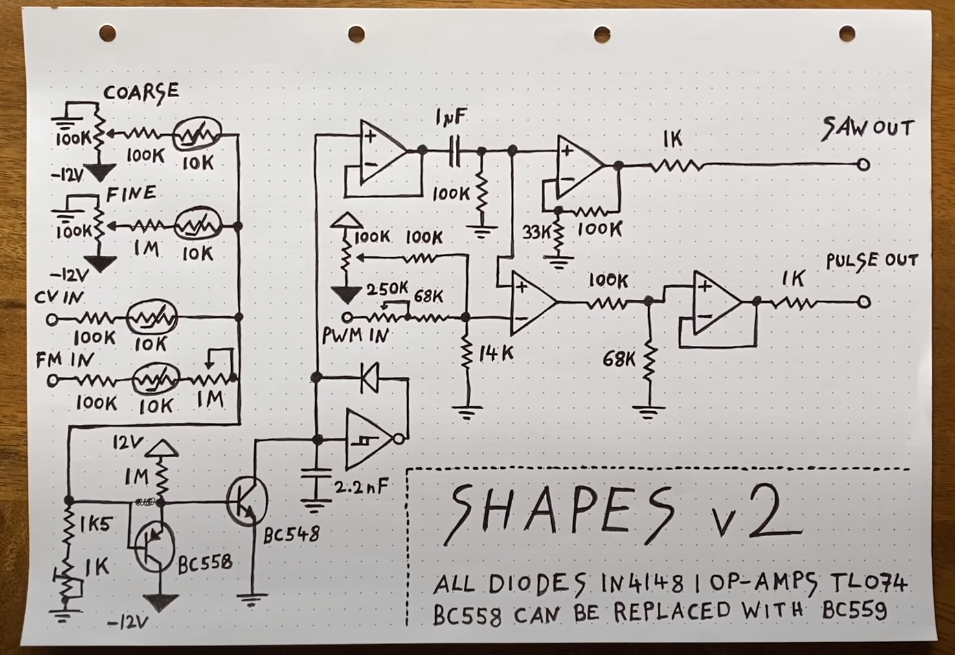 COARSE
100K
100K
10K
-12V
FINE
100K
1M
10K
-12V
CV IN
100K
10K
FM IN
100K
10K
1M
12V
1M
1K5
1K
BC558
-12V
BC548
2.2nF
1µF
100K
+
-
+
-
33K
100K
1K
SAW OUT
100K
100K
250K
68K
PWM IN
14K
+
-
100K
68K
+
-
1K
PULSE OUT
SHAPES v2
ALL DIODES 1N4148 | OP-AMPS TL074
BC558 CAN BE REPLACED WITH BC559